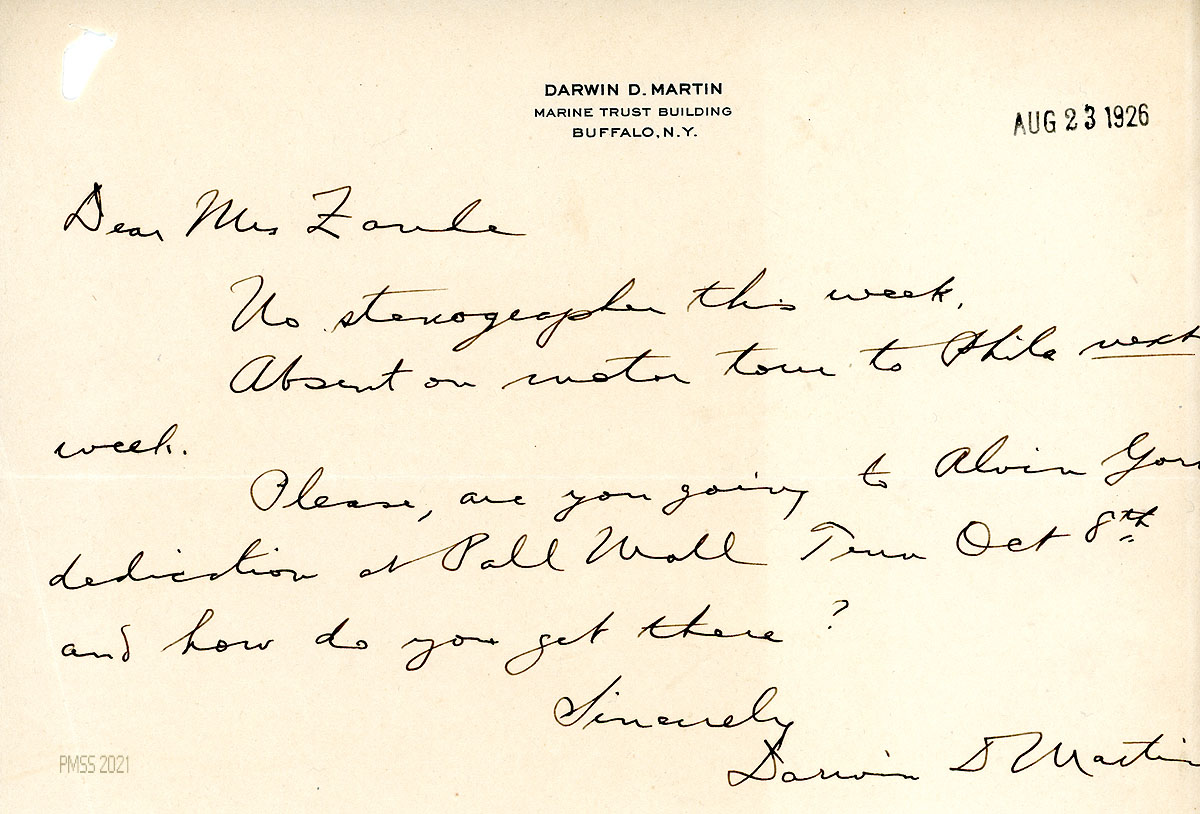 DARWIN D. MARTIN
MARINE TRUST BUILDING
BUFFALO, N.Y.
AUG 23 1926
Dear Mrs Zande
No stenographer this week.
Absent on motor tour to Phila next
week.
Please, are you going to Alvin York
dedication at Pall Mall Tenn Oct 8th
and how do you get there?
Sincerely
Darwin D Martin
PMSS 2021